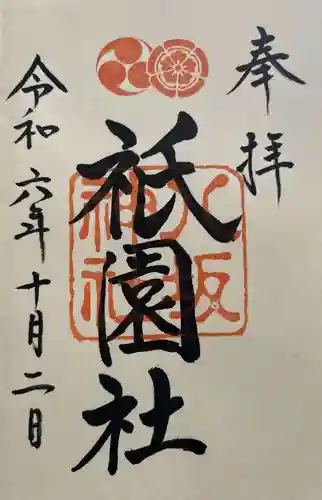 奉拝
八坂神社
祇園社
令和六年十月二日